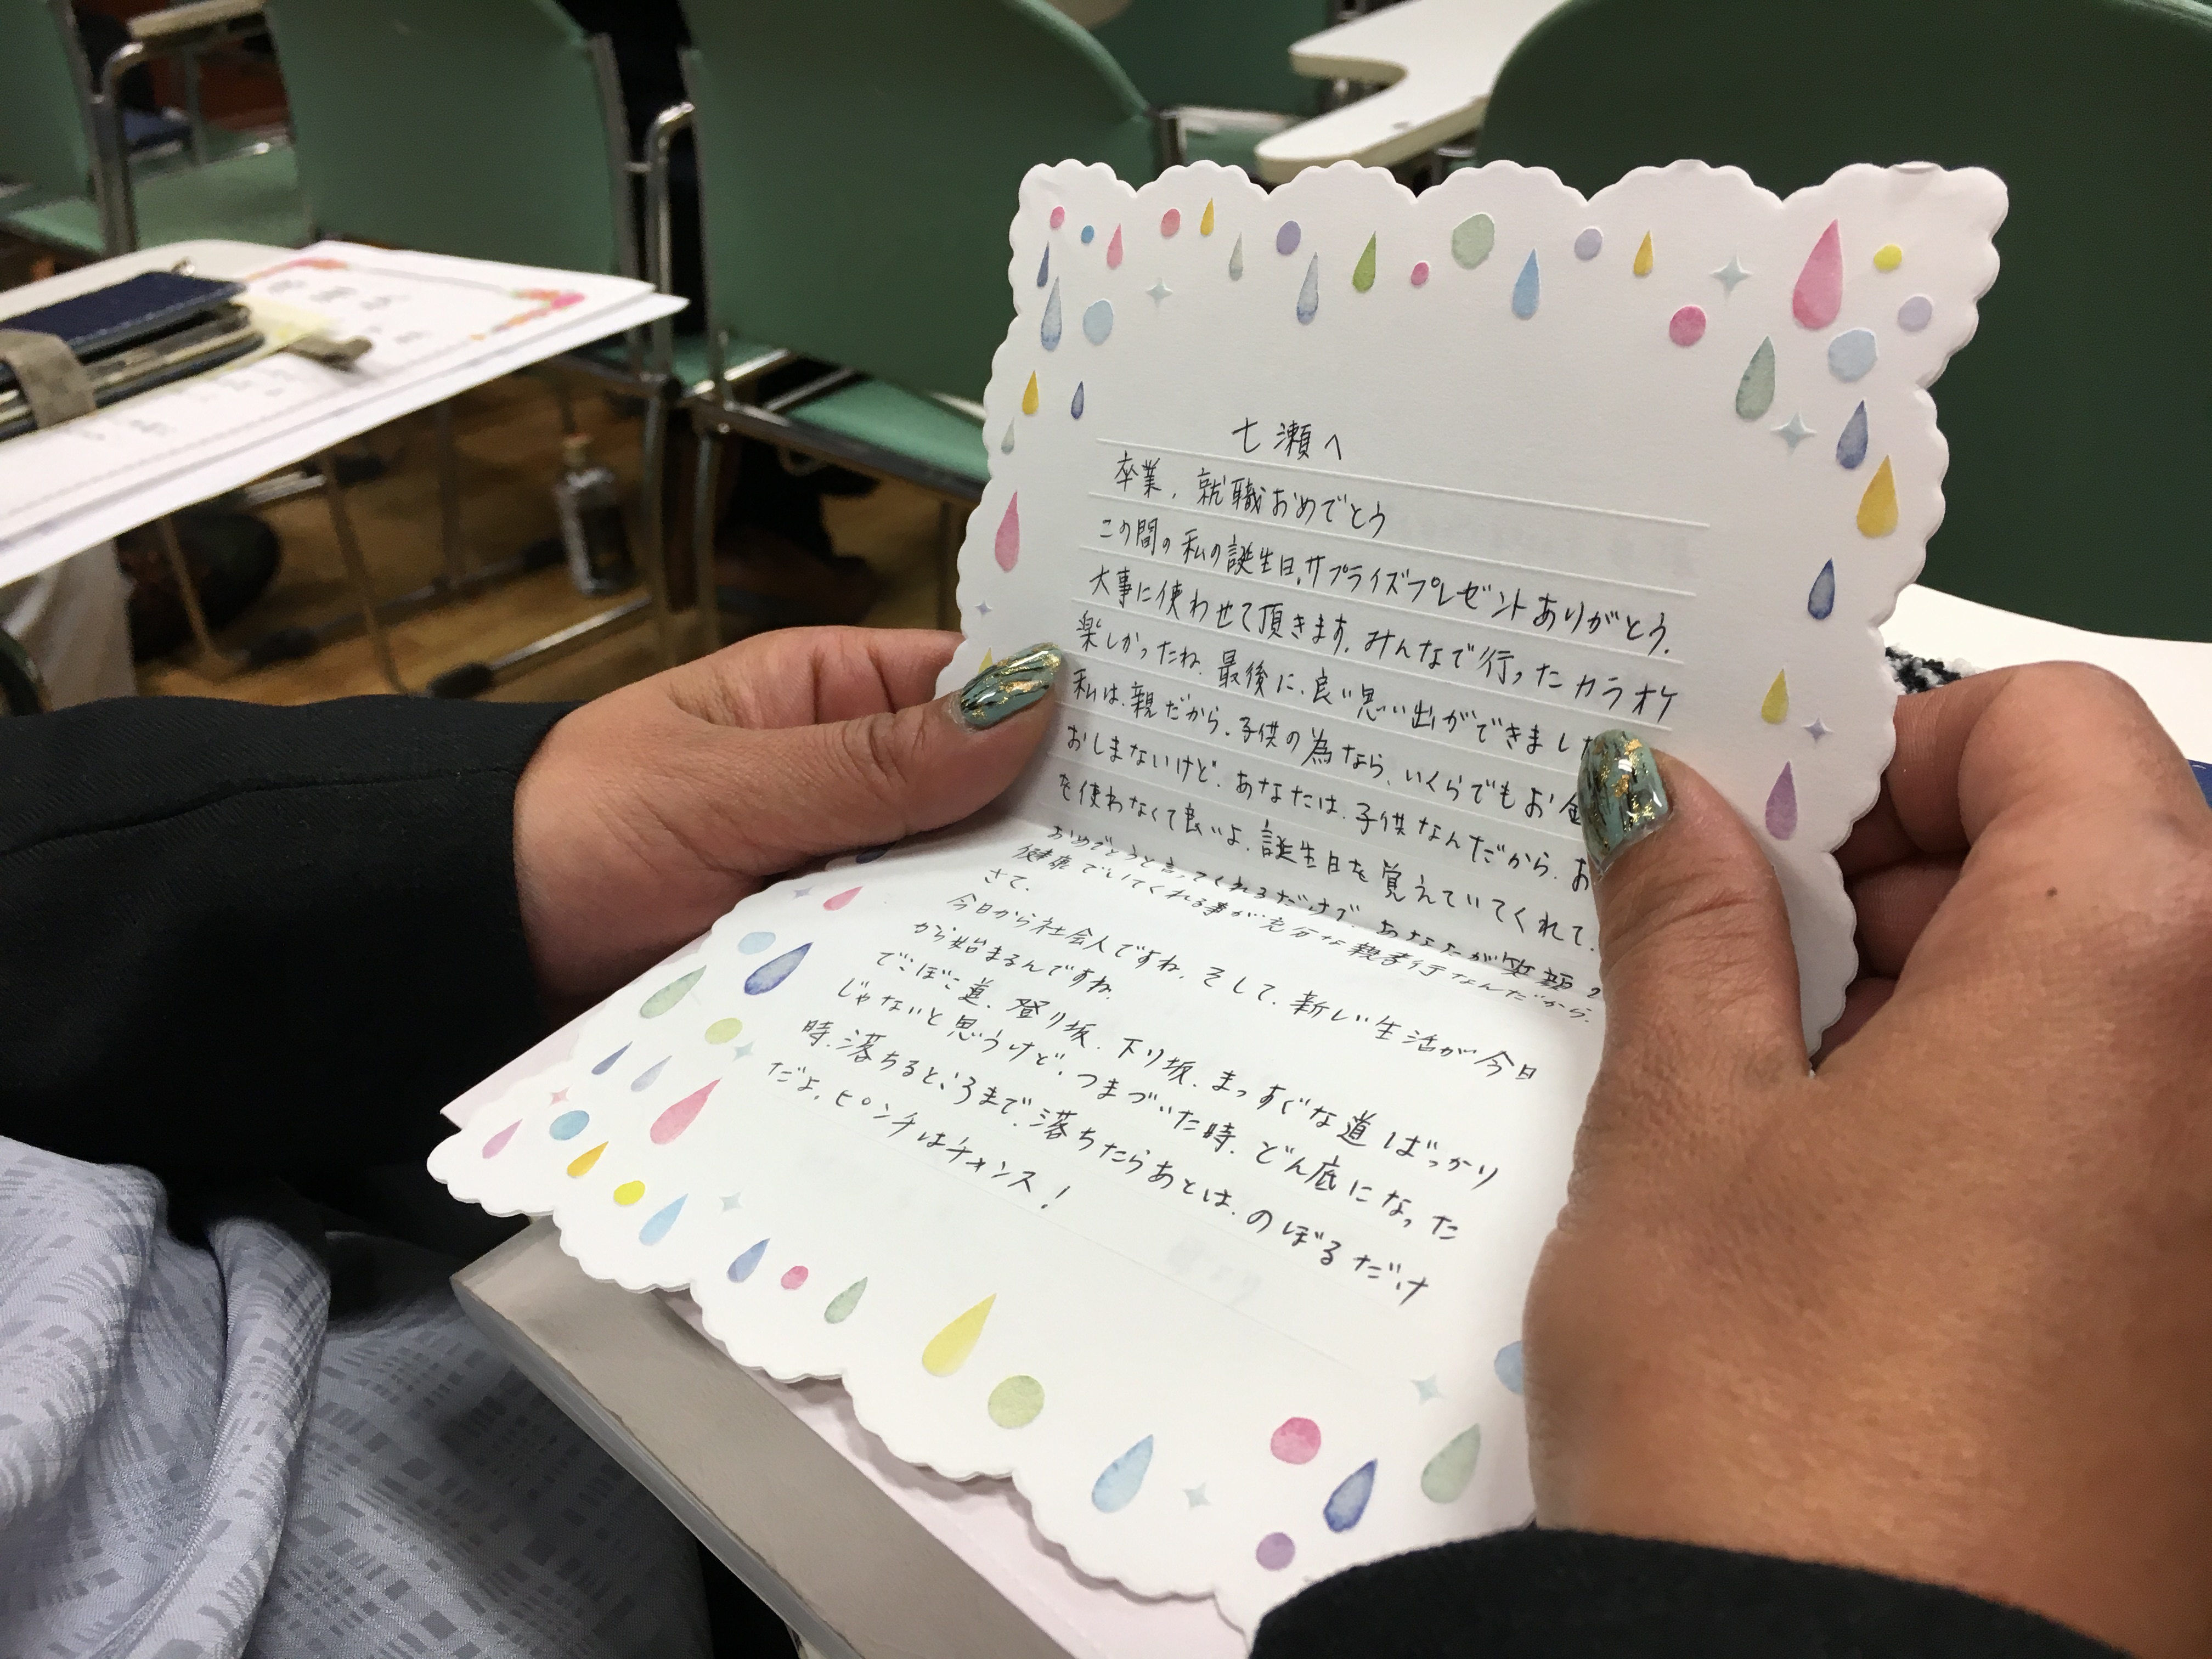 七瀬へ
卒業、就職おめでとう
この間の私の誕生日、サプライズプレゼントありがとう。
大事に使わせて頂きます。みんなで行ったカラオケ
楽しかったね。最後に、良い思い出ができまし
私は、親だから、子供の為なら、いくらでもお金
おしまないけど、あなたは、子供なんだから、お
を使わなくて良いよ。誕生日を覚えていてくれて、
おめでとうと言ってくれるだけで、あなたが笑顔で
健康でいてくれる事が充分な親孝行なんだから。
さて、
今日から社会人ですね。そして、新しい生活が今日
から始まるんですね。
でこぼこ道、登り坂、下り坂、まっすぐな道ばっかり
じゃないと思うけど、つまづいた時、どん底になった
時、落ちるところまで、落ちたらあとは、のぼるだけ
だよ。ピンチはチャンス!